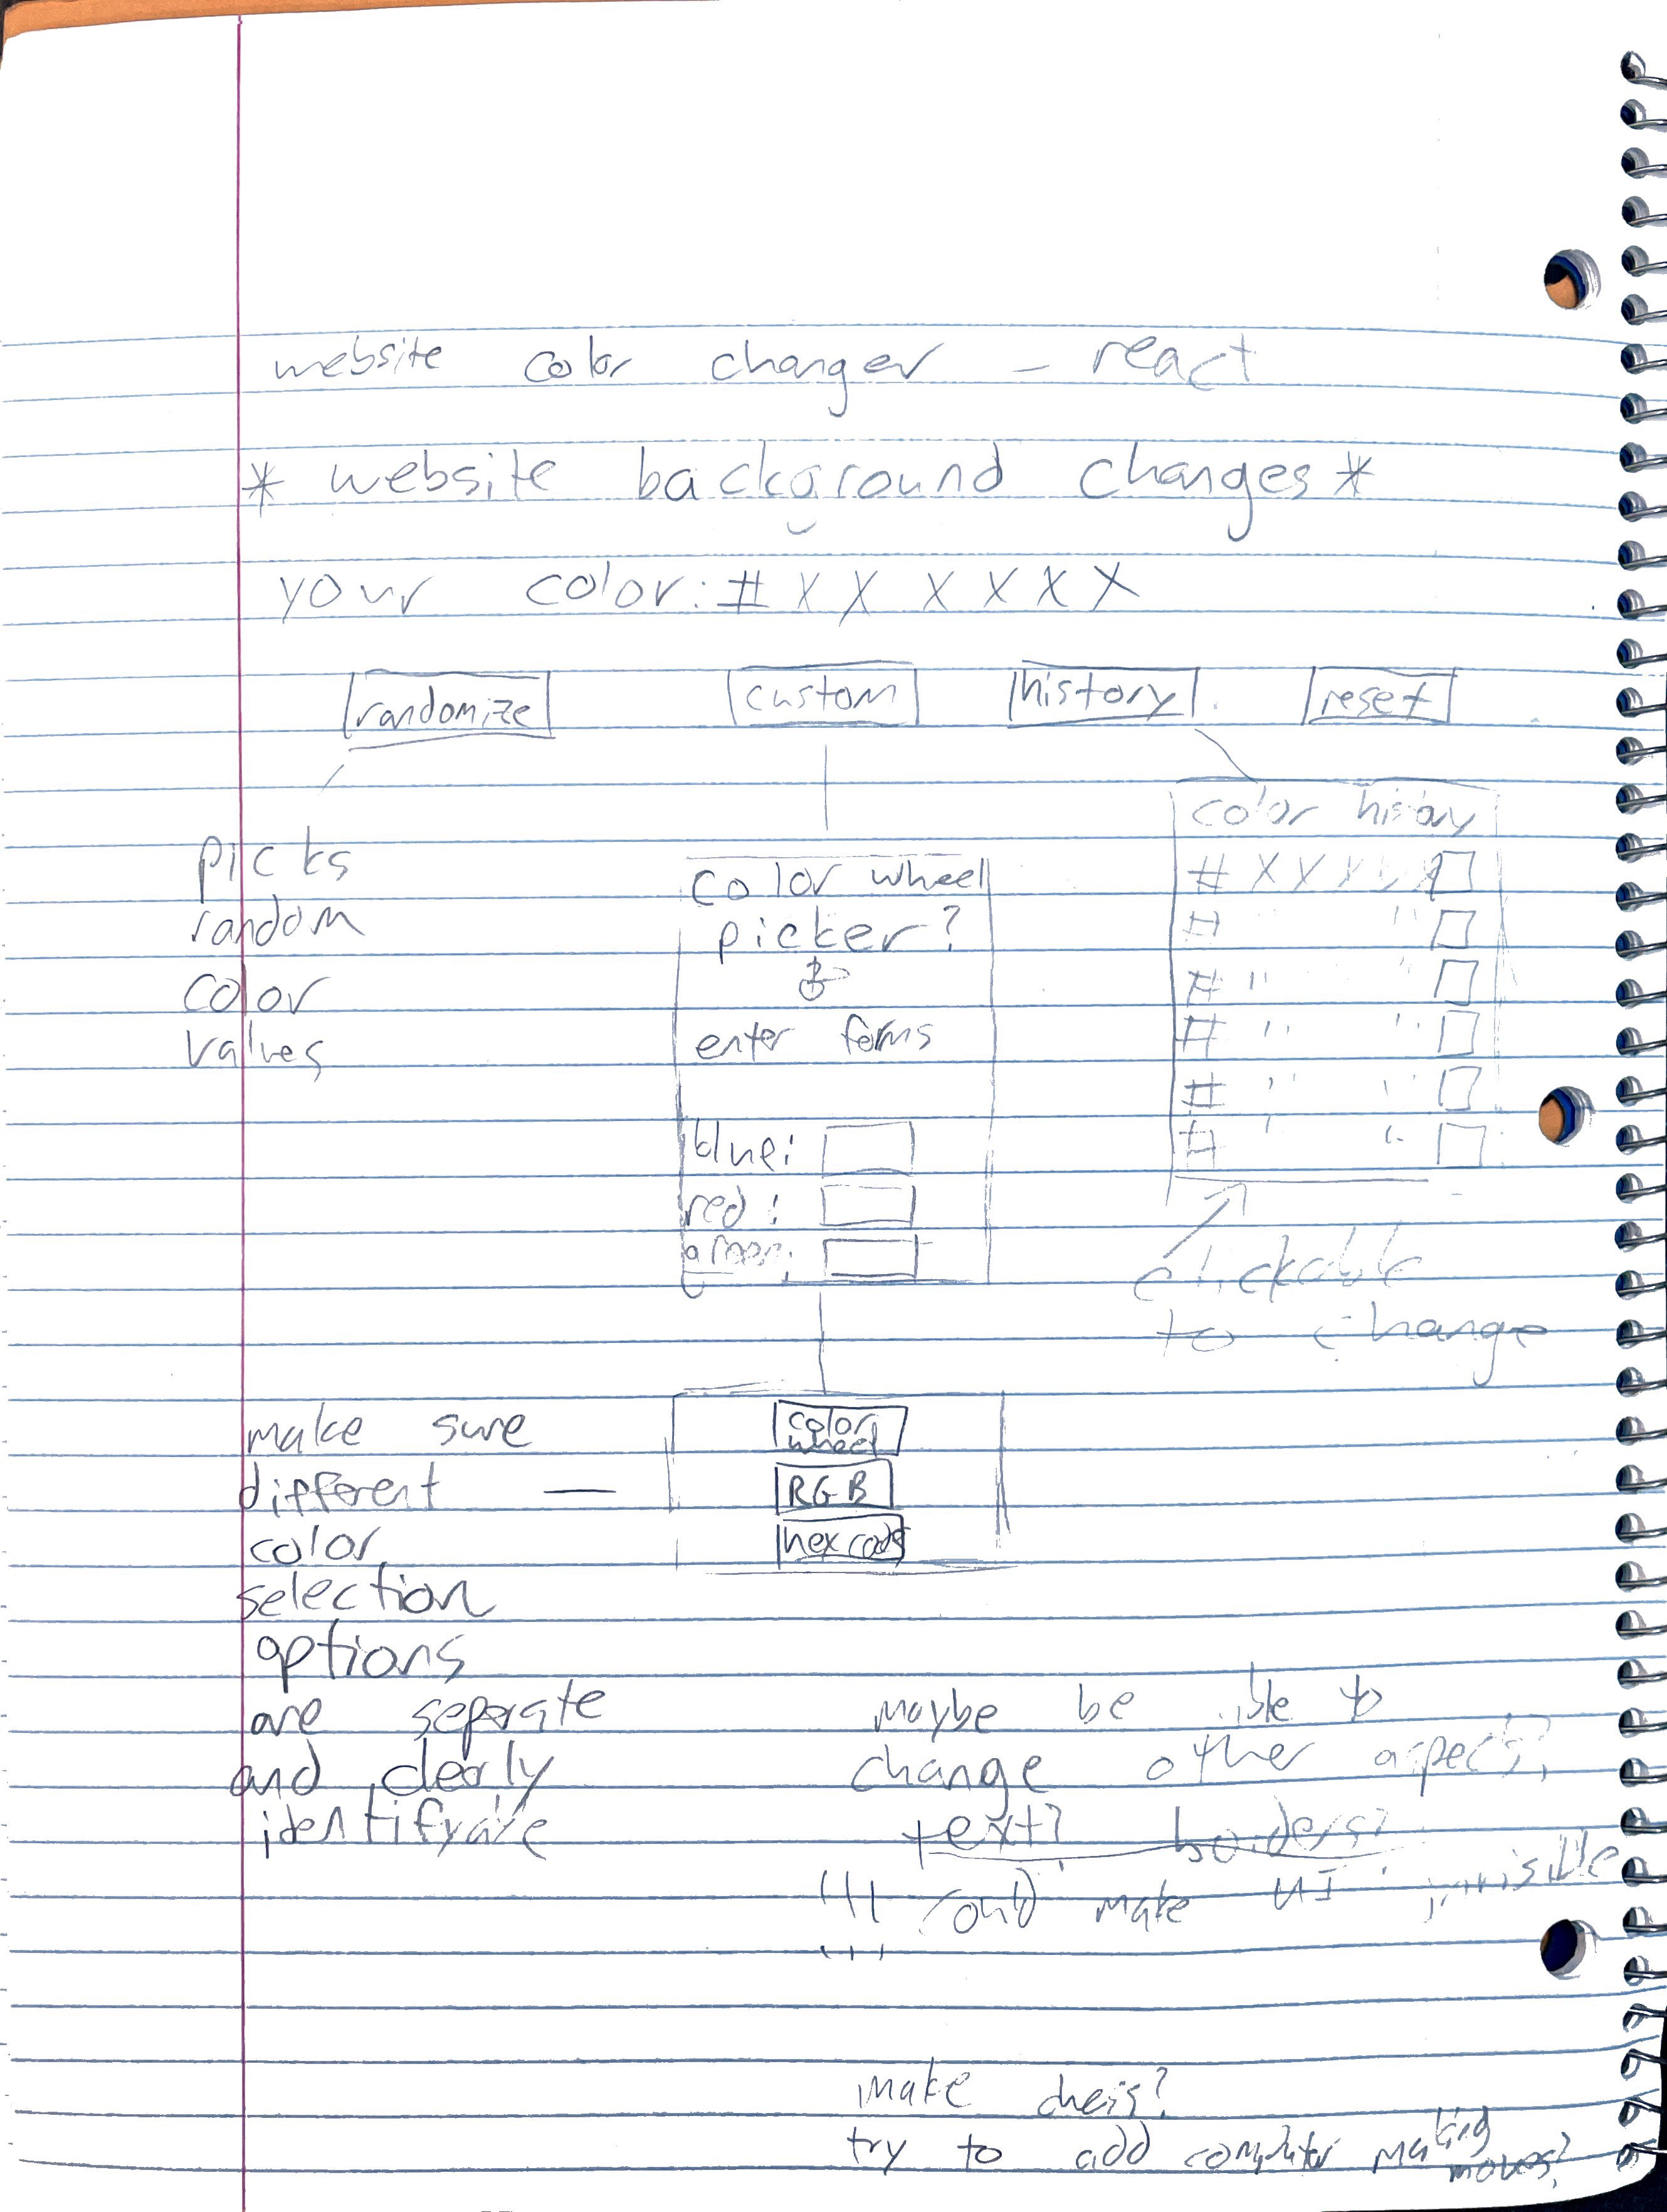 website color changer - react
* website background changes *
your color: # X X X X X X
randomize custom history reset
picks
random
color
values
color wheel
picker?
enter forms
blue:
red:
green:
color history
# X X X X X
# " "
# " "
# " "
# " "
# " "
clickable
to change
make sure
different —
color
selection
options
are separate
and clearly
color
wheel
RGB
hex code
maybe be able to
change other aspects,
text? borders?
!!! could make UI invisible
make
try to add computer making
moves?